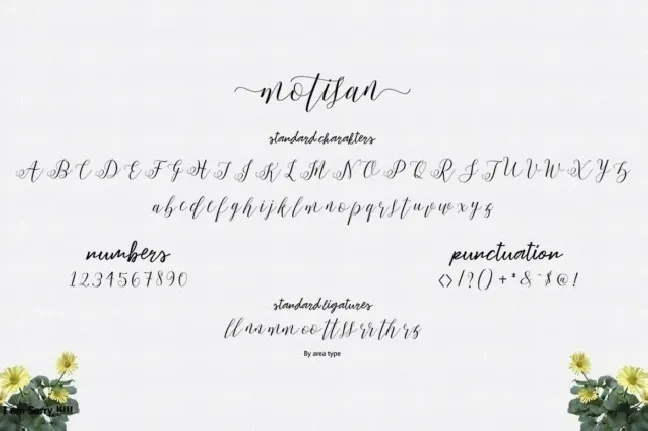 motisan
standard charafters
A B C D E F G H I J K L M N O P Q R S T U V W X Y Z
a b c d e f g h i j k l m n o p q r s t u v w x y z
numbers
1 2 3 4 5 6 7 8 9 0
punctuation
<> / ? ( ) + * & ~ $ @ !
standard ligatures
ll nn mm oo tt ss rr th rz
By area type
I am Sorry !!!!!